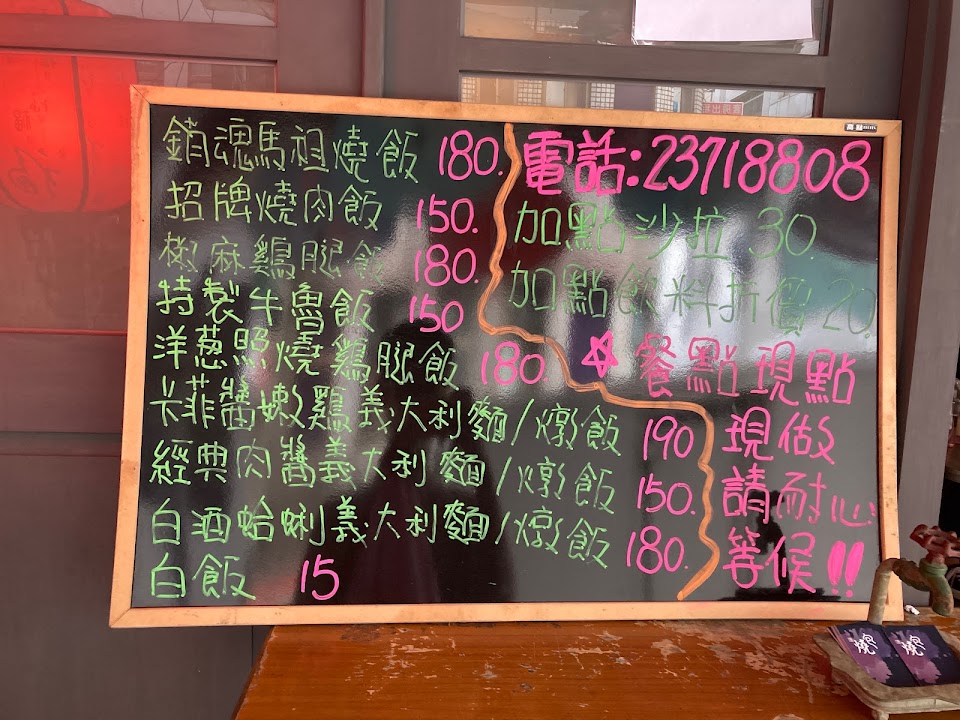 銷魂馬祖燒飯 180.
招牌燒肉飯 150.
椒麻鷄腿飯 180.
特製牛魯飯 150
洋葱照燒鷄腿飯 180
卡菲醬嫩鷄義大利麵/燉飯 190
經典肉醬義大利麵/燉飯 150.
白酒蛤蜊義大利麵/燉飯 180.
白飯 15
電話:23718808
加點沙拉 30
加點飲料折價 20
☆餐點現點
現做
請耐心
等候!!